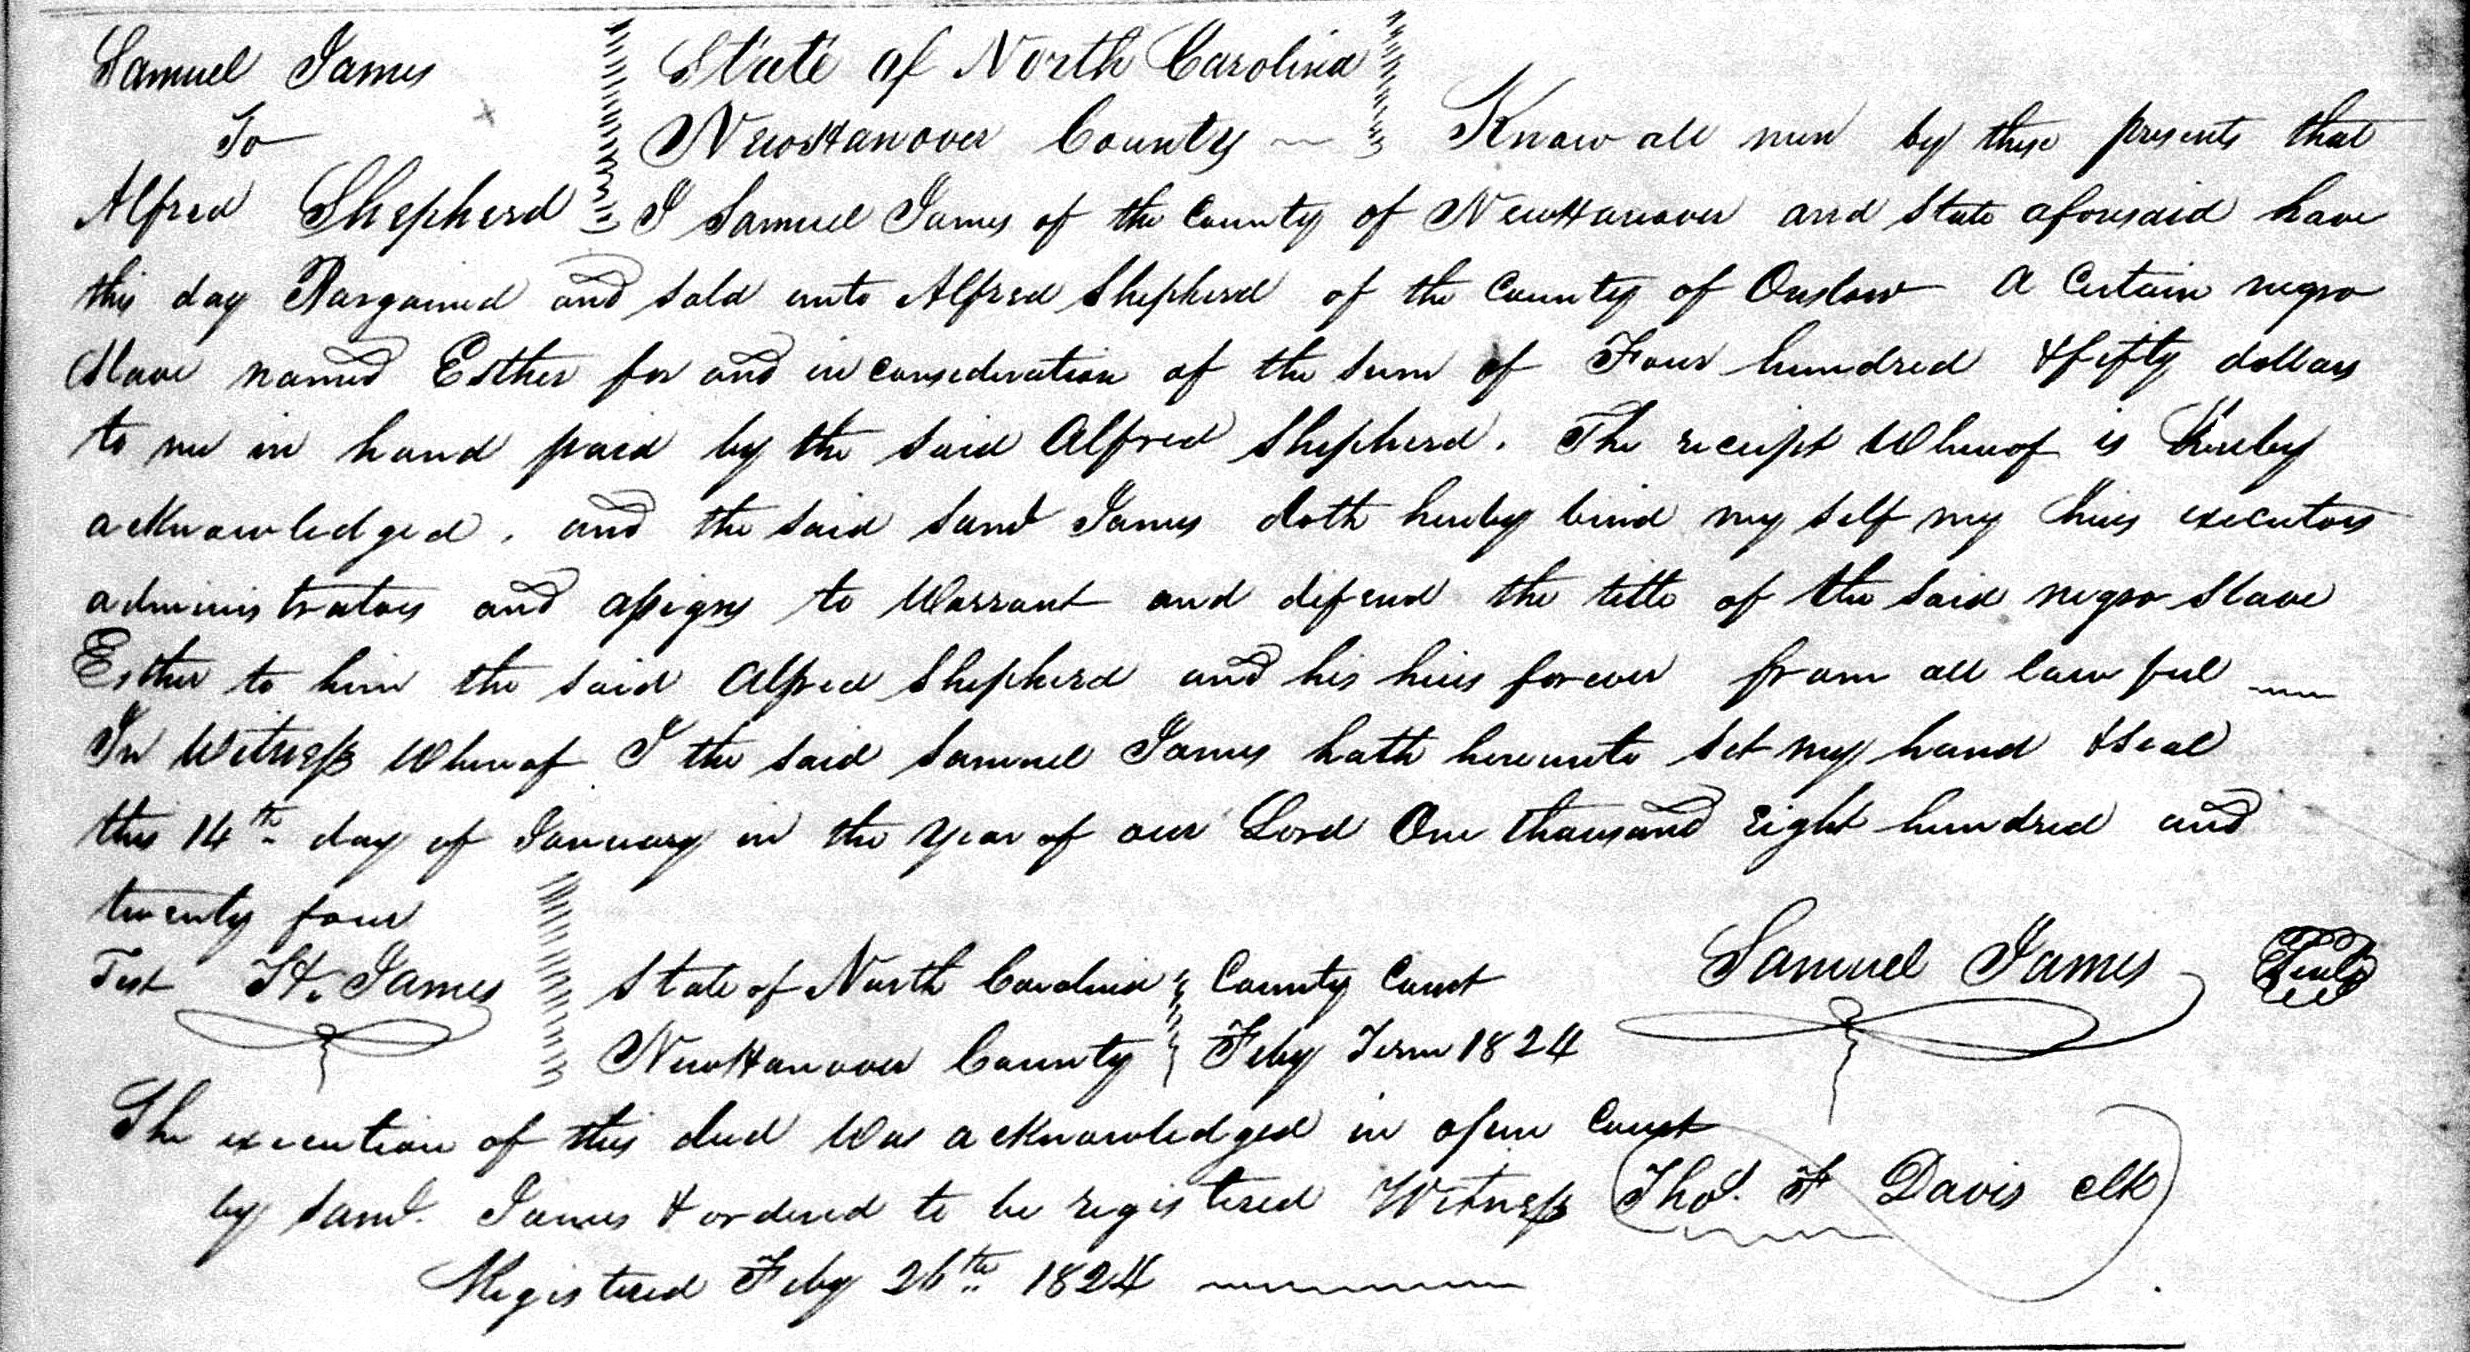 Samuel James
To
Alfred Shepherd
State of North Carolina
NewHanover County
Know all men by these presents that
I Samuel James of the County of NewHanover and State aforesaid have
this day Bargained and sold unto Alfred Shepherd of the County of Onslow A Certain negro
Slave named Esther for and in consideration of the sum of Four hundred & fifty dollars
to me in hand paid by the said Alfred Shepherd. The receipt Whereof is hereby
acknowledged, and the said Saml James doth hereby bind my self my heirs executors
administrators and assigns to Warrant and defend the title of the said negro Slave
Esther to him the said Alfred Shepherd and his heirs forever from all lawful
In Witness Whereof I the said Samuel James hath hereunto set my hand & seal
this 14th day of January in the year of our Lord One thousand eight hundred and
twenty four
Samuel James Seal
Test H. James
State of North Carolina
NewHanover County
County Court
Feby Term 1824
The execution of this deed Was acknowledged in open Court
by Saml. James & ordered to be registered Witness Thos. F Davis clk
Registered Feby 26th 1824